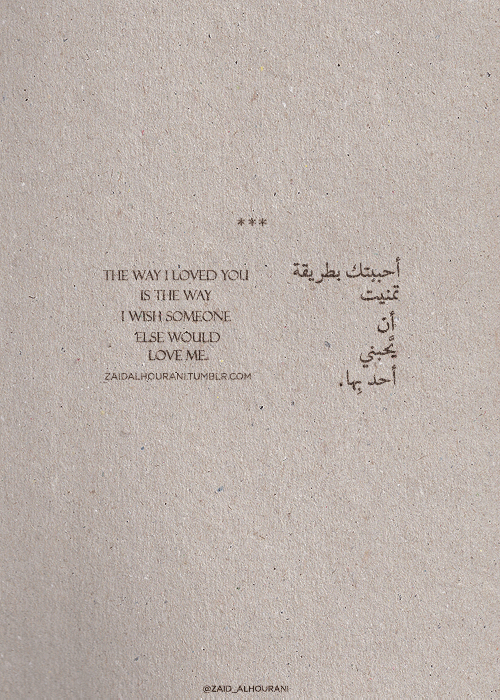 ***
THE WAY I LOVED YOU
IS THE WAY
I WISH SOMEONE
ELSE WOULD
LOVE ME.
ZAIDALHOURANI.TUMBLR.COM
أحببتك بطريقة
تمنيت
أن
يَّحبني
أحد بِها.
@ZAID_ALHOURANI